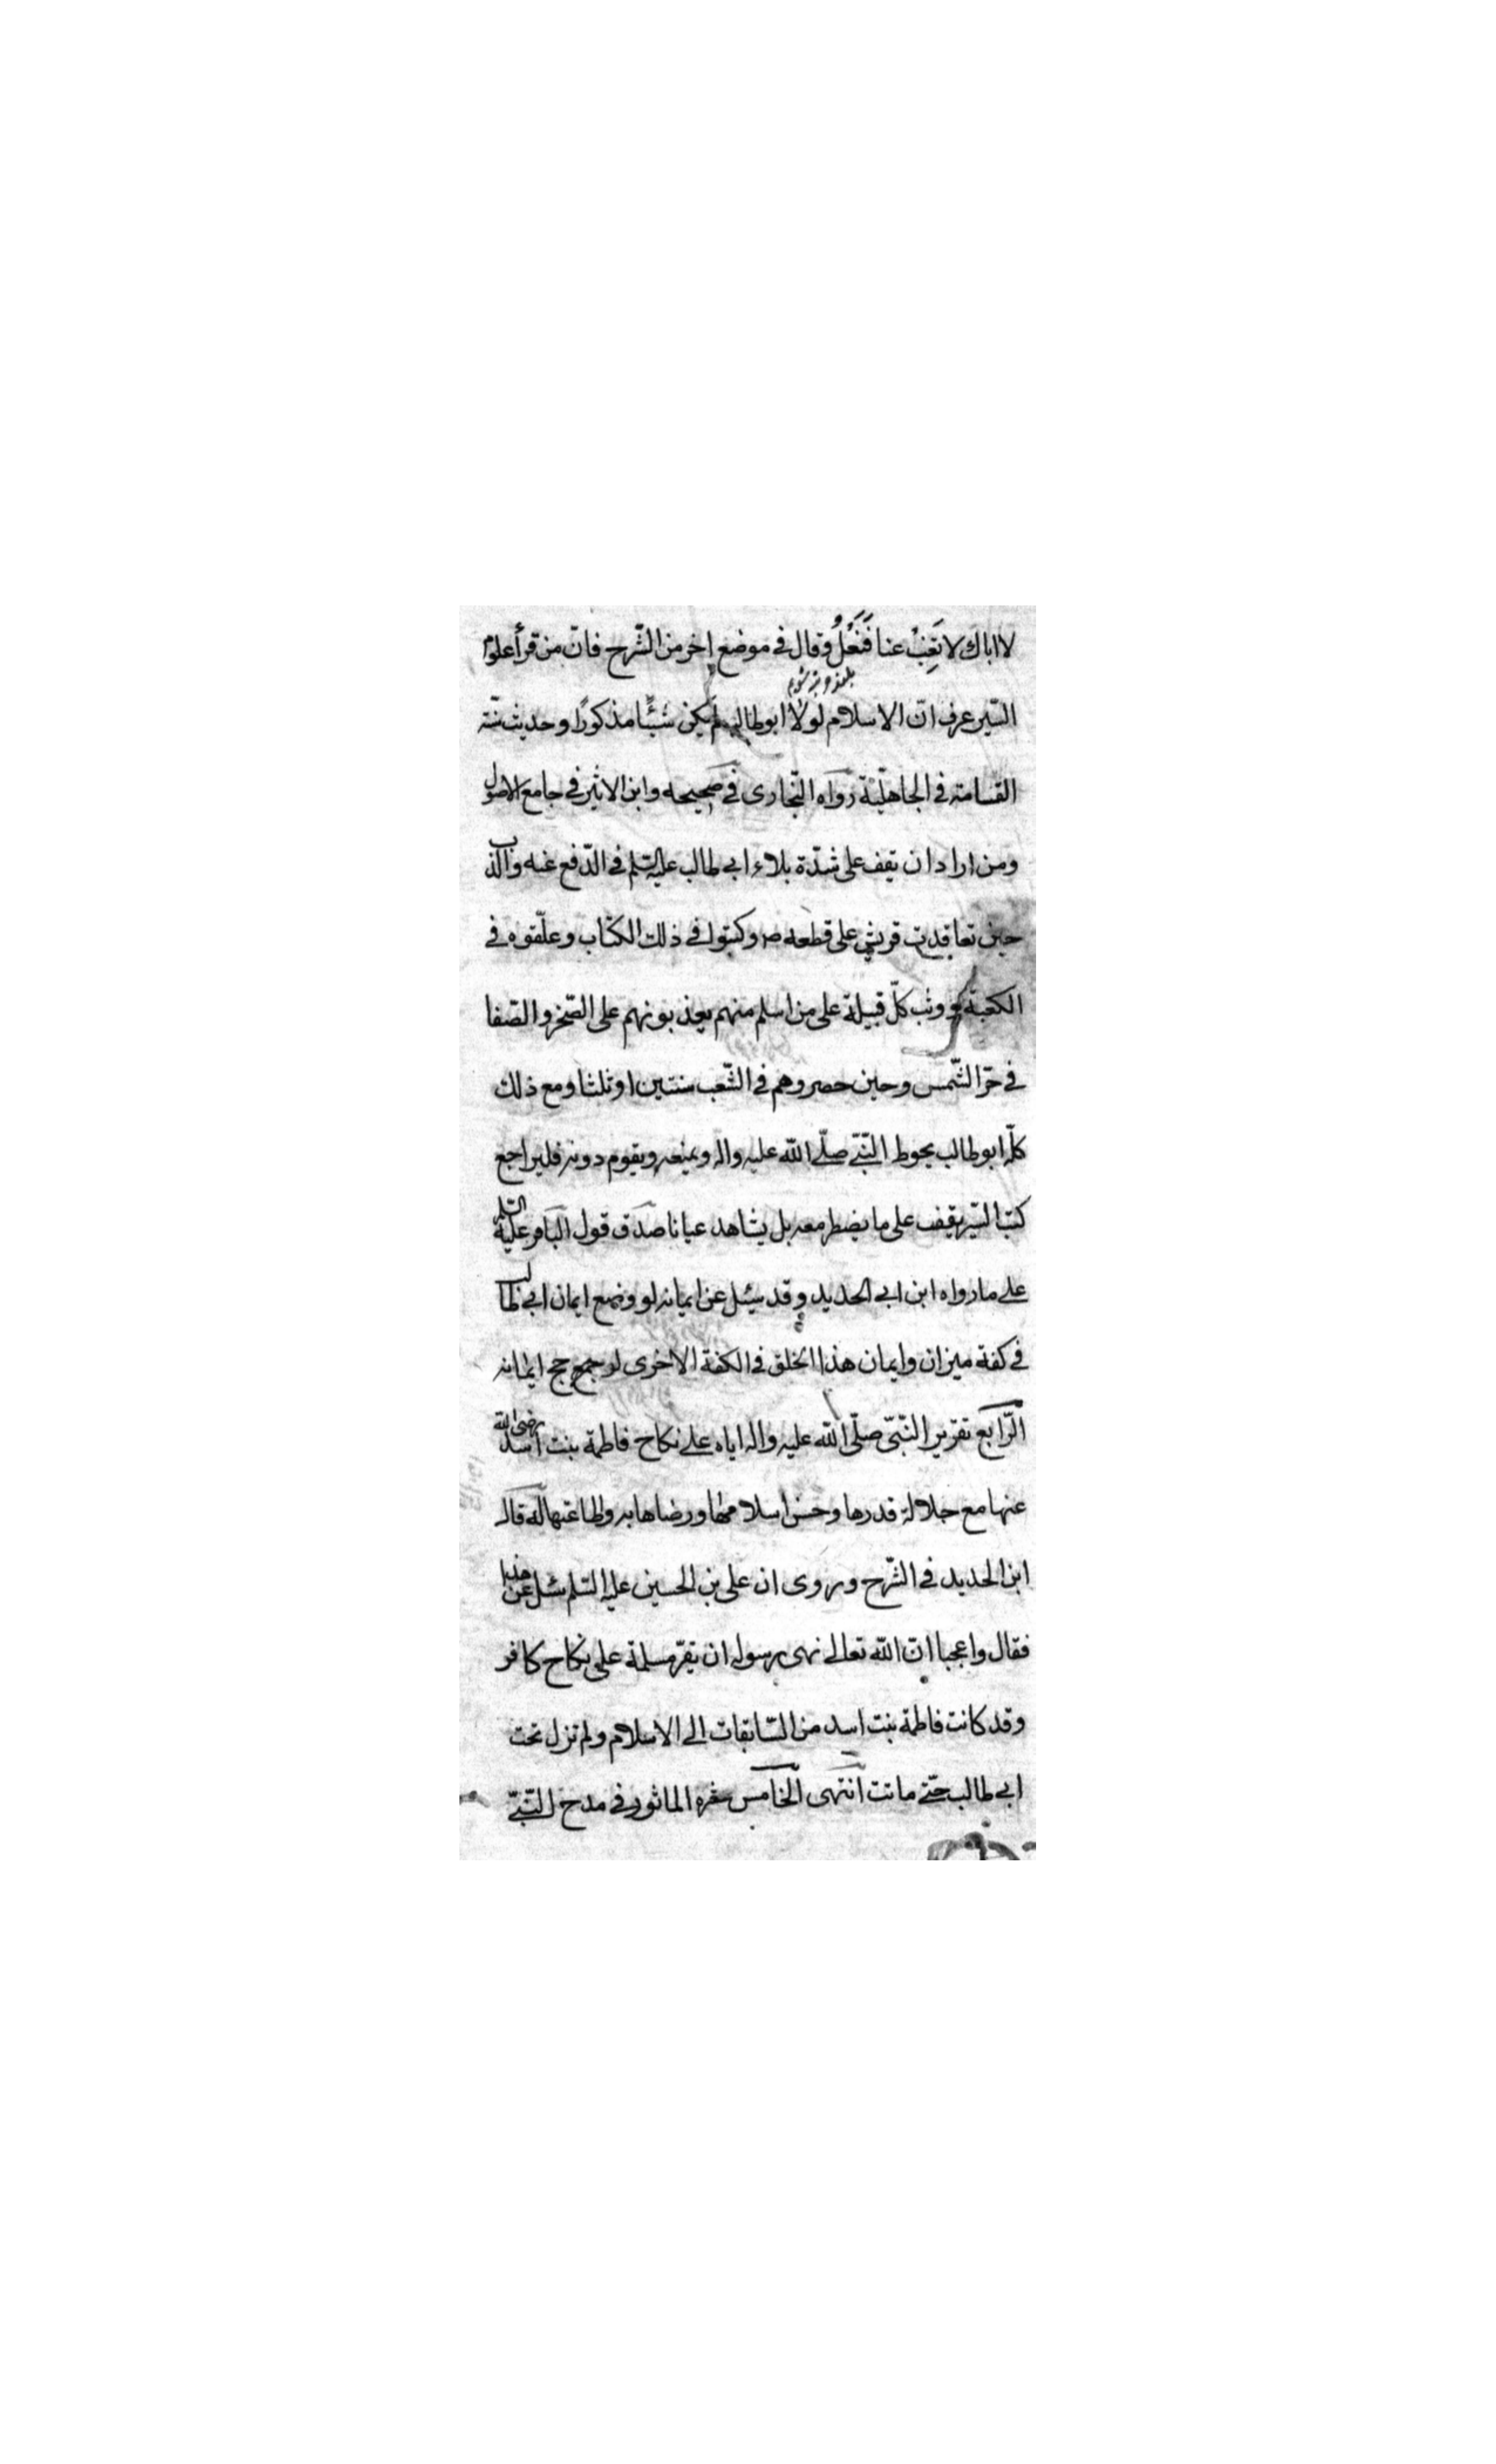 لا اباك لا تَغِبْ عنا فَنَغْلُ وقال في موضع اخر من الشّرح فانّ من قرأ علوم
السّير عرف انّ الاسلام لولا ابو طالب لم يكن شيئًا مذكورًا وحديث سنّة
القسامة في الجاهليّة رواه البخارى في صحيحه وابن الاثير في جامع الاصول
ومن اراد ان يقف على شدّة بلاء ابي طالب عليه السّلم في الدّفع عنه والذب
حين تعاقدت قريش على قطعه ص وكتبوا في ذلك الكتاب وعلّقوه في
الكعبة ووثب كلّ قبيلة على من اسلم منهم يعذبونهم على الصّخر والصّفا
في حرّ الشّمس وحين حصروهم في الشّعب سنتين او ثلثا ومع ذلك
كلّه ابو طالب يحوط النّبيّ صلّى اللّه عليه واله ويمنعه ويقوم دونه فليراجع
كتب السّير يقف على ما يضطر معه بل يشاهد عيانا صدق قول الباقر عليه السّلم
على ما رواه ابن ابي الحديد وقد سئل عن ايمانه لو وضع ايمان ابي طالب
في كفة ميزان وايمان هذا الخلق في الكفة الاخرى لرجح ايمانه
الرّابع تقرير النّبيّ صلّى اللّه عليه واله اياه على نكاح فاطمة بنت اسد رضى اللّه
عنها مع جلالة قدرها وحسن اسلامها ورضاها به وطاعتها له قال
ابن الحديد في الشّرح وروى ان على بن الحسين عليه السّلم سئل عن هذا
فقال واعجبا انّ اللّه تعالى نهى رسوله ان يقرّ مسلمة على نكاح كافر
وقد كانت فاطمة بنت اسد من السّابقات الى الاسلام ولم تزل تحت
ابي طالب حتّى ماتت انتهى الخامس شعره الماثور في مدح النّبيّ